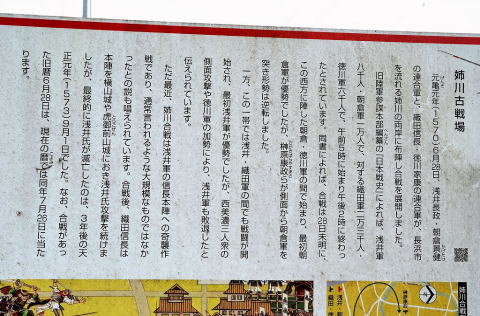 姉川古戦場
元亀元年(1570)6月28日、浅井長政・朝倉景健
の連合軍と、織田信長・徳川家康の連合軍が、長浜市
を流れる姉川の両岸に布陣し合戦を展開しました。
旧陸軍参謀本部編纂の『日本戦史』によれば、浅井軍
八千人・朝倉軍一万人で、対する織田軍二万三千人・
徳川軍六千人で、午前5時に始まり午後2時に終わっ
たとされています。同書によれば、合戦は28日未明に、
この西方に陣した朝倉・徳川軍の間で始まり、最初朝
倉軍が優勢でしたが、榊原康政らが側面から朝倉軍を
突き形勢は逆転しました。
一方、この一帯では浅井・織田軍の間でも戦闘が開
始され、最初浅井軍が優勢でしたが、西美濃三人衆の
側面攻撃や徳川軍の加勢により、浅井軍も敗退したと
伝えられています。
ただ最近、姉川合戦は浅井軍の信長本陣への奇襲作
戦であり、通常言われるような大規模なものではなか
ったとの説も唱えられています。合戦後、織田信長は
本陣を横山城や虎御前山城におき浅井氏攻撃を続けま
したが、最終的に浅井氏が滅亡したのは、3年後の天
正元年(1573)9月1日でした。なお、合戦があっ
た旧暦6月28日は、現在の暦では同年7月26日に当た
ります。
姉川合戦
浅井・朝
織田・徳